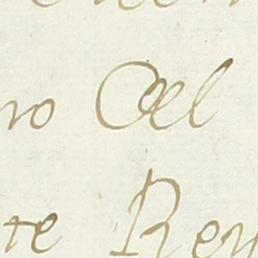 ro Del
te Rey